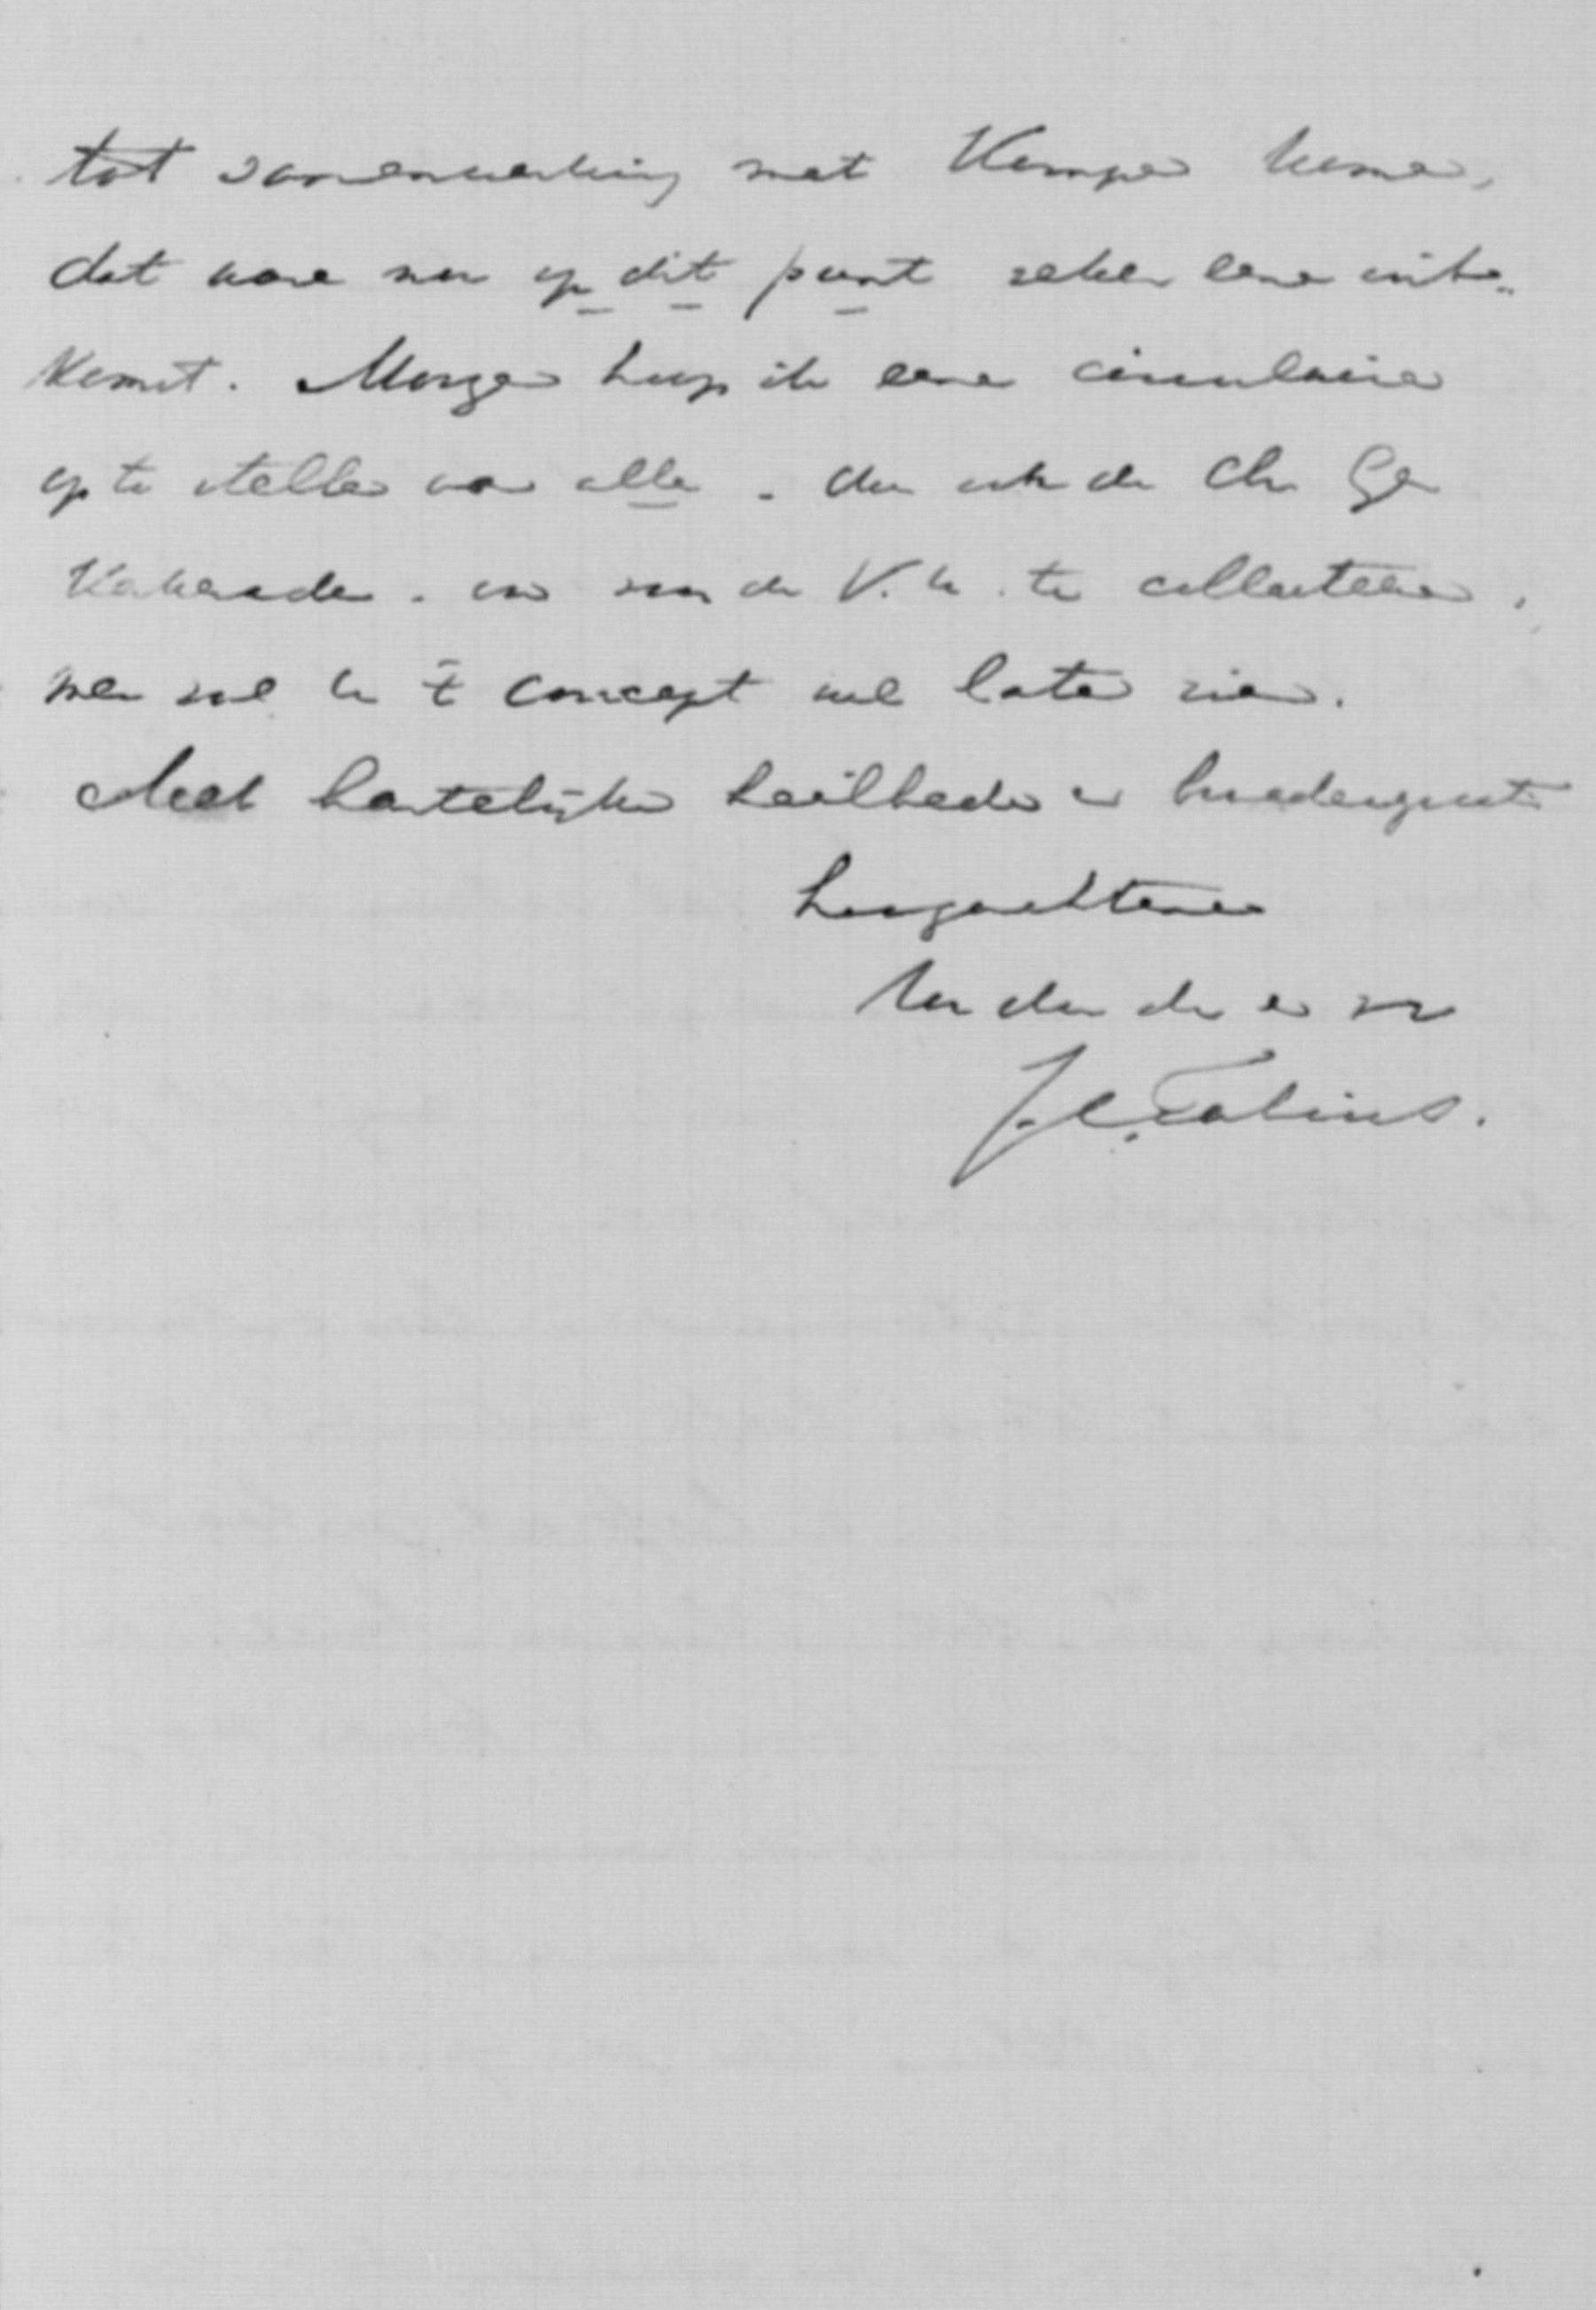 tot samenwerking met Kampen komen,
dat ware nu op dit punt zeker eene uit-
komst. Morgen hoop ik eene circulaire
op te stellen aan alle. dus ook de Chr Ger
Kerkeraden. om voor de V.U. te collecteeren.
men zal U 't concept wel laten zien.
Met hartelijke heilbede en broedergroete
hoogachtend
Uw dw dr en vr
J. C. Fabius.